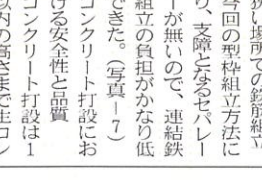 狭い場所での鉄筋組立
今回の型枠組立方法に
り、支障となるセパレー
ーが無いので、連結鉄
組立の負担がかなり低
できた。(写真－7)
コンクリート打設にお
ける安全性と品質
コンクリート打設は1
以内の高さまで生コン